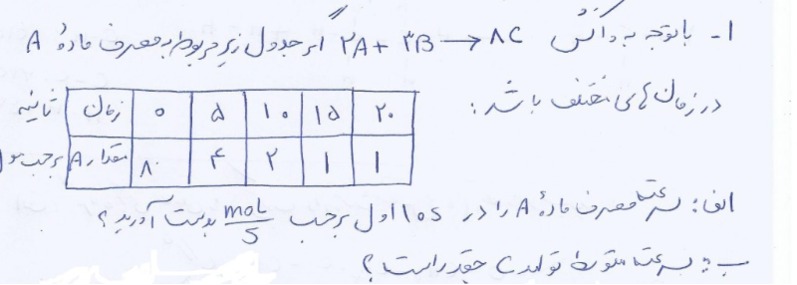 ۱- باتوجه به واکنش ۲A + ۳B → ۸C اگر جدول زیر مربوط به مصرف مادهٔ A
در زمان های مختلف باشد:
زمان ثانیه ۰ ۵ ۱۰ ۱۵ ۲۰
مقدار A برحسب ۸ ۴ ۲ ۱ ۱
الف: سرعت مصرف مادهٔ A را در ۱۰s اول برحسب mol/s بدست آورید؟
ب: سرعت متوسط تولید C چقدر است؟